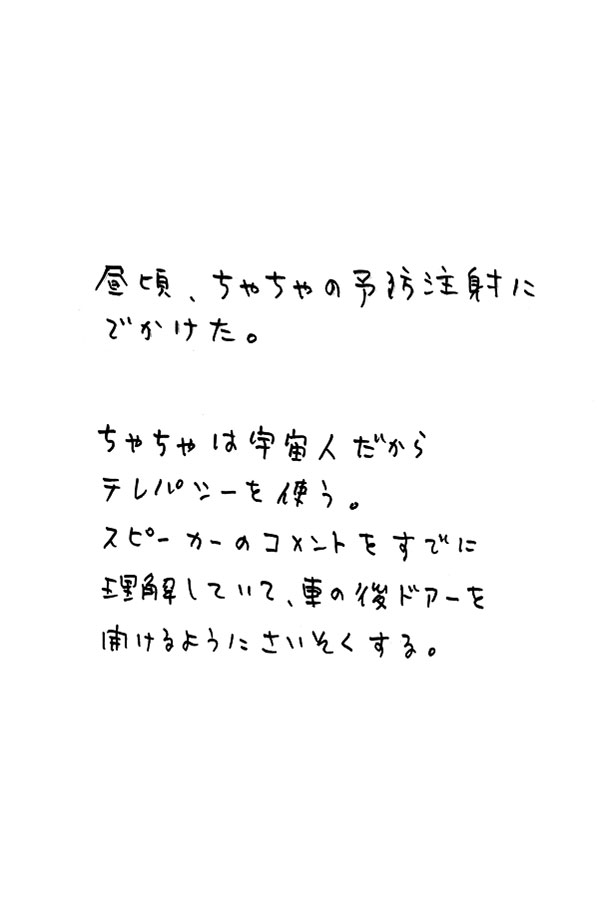 昼頃、ちゃちゃの予防注射に
でかけた。
ちゃちゃは宇宙人だから
テレパシーを使う。
スピーカーのコメントをすでに
理解していて、車の後ドアーを
開けるようにさいそくする。